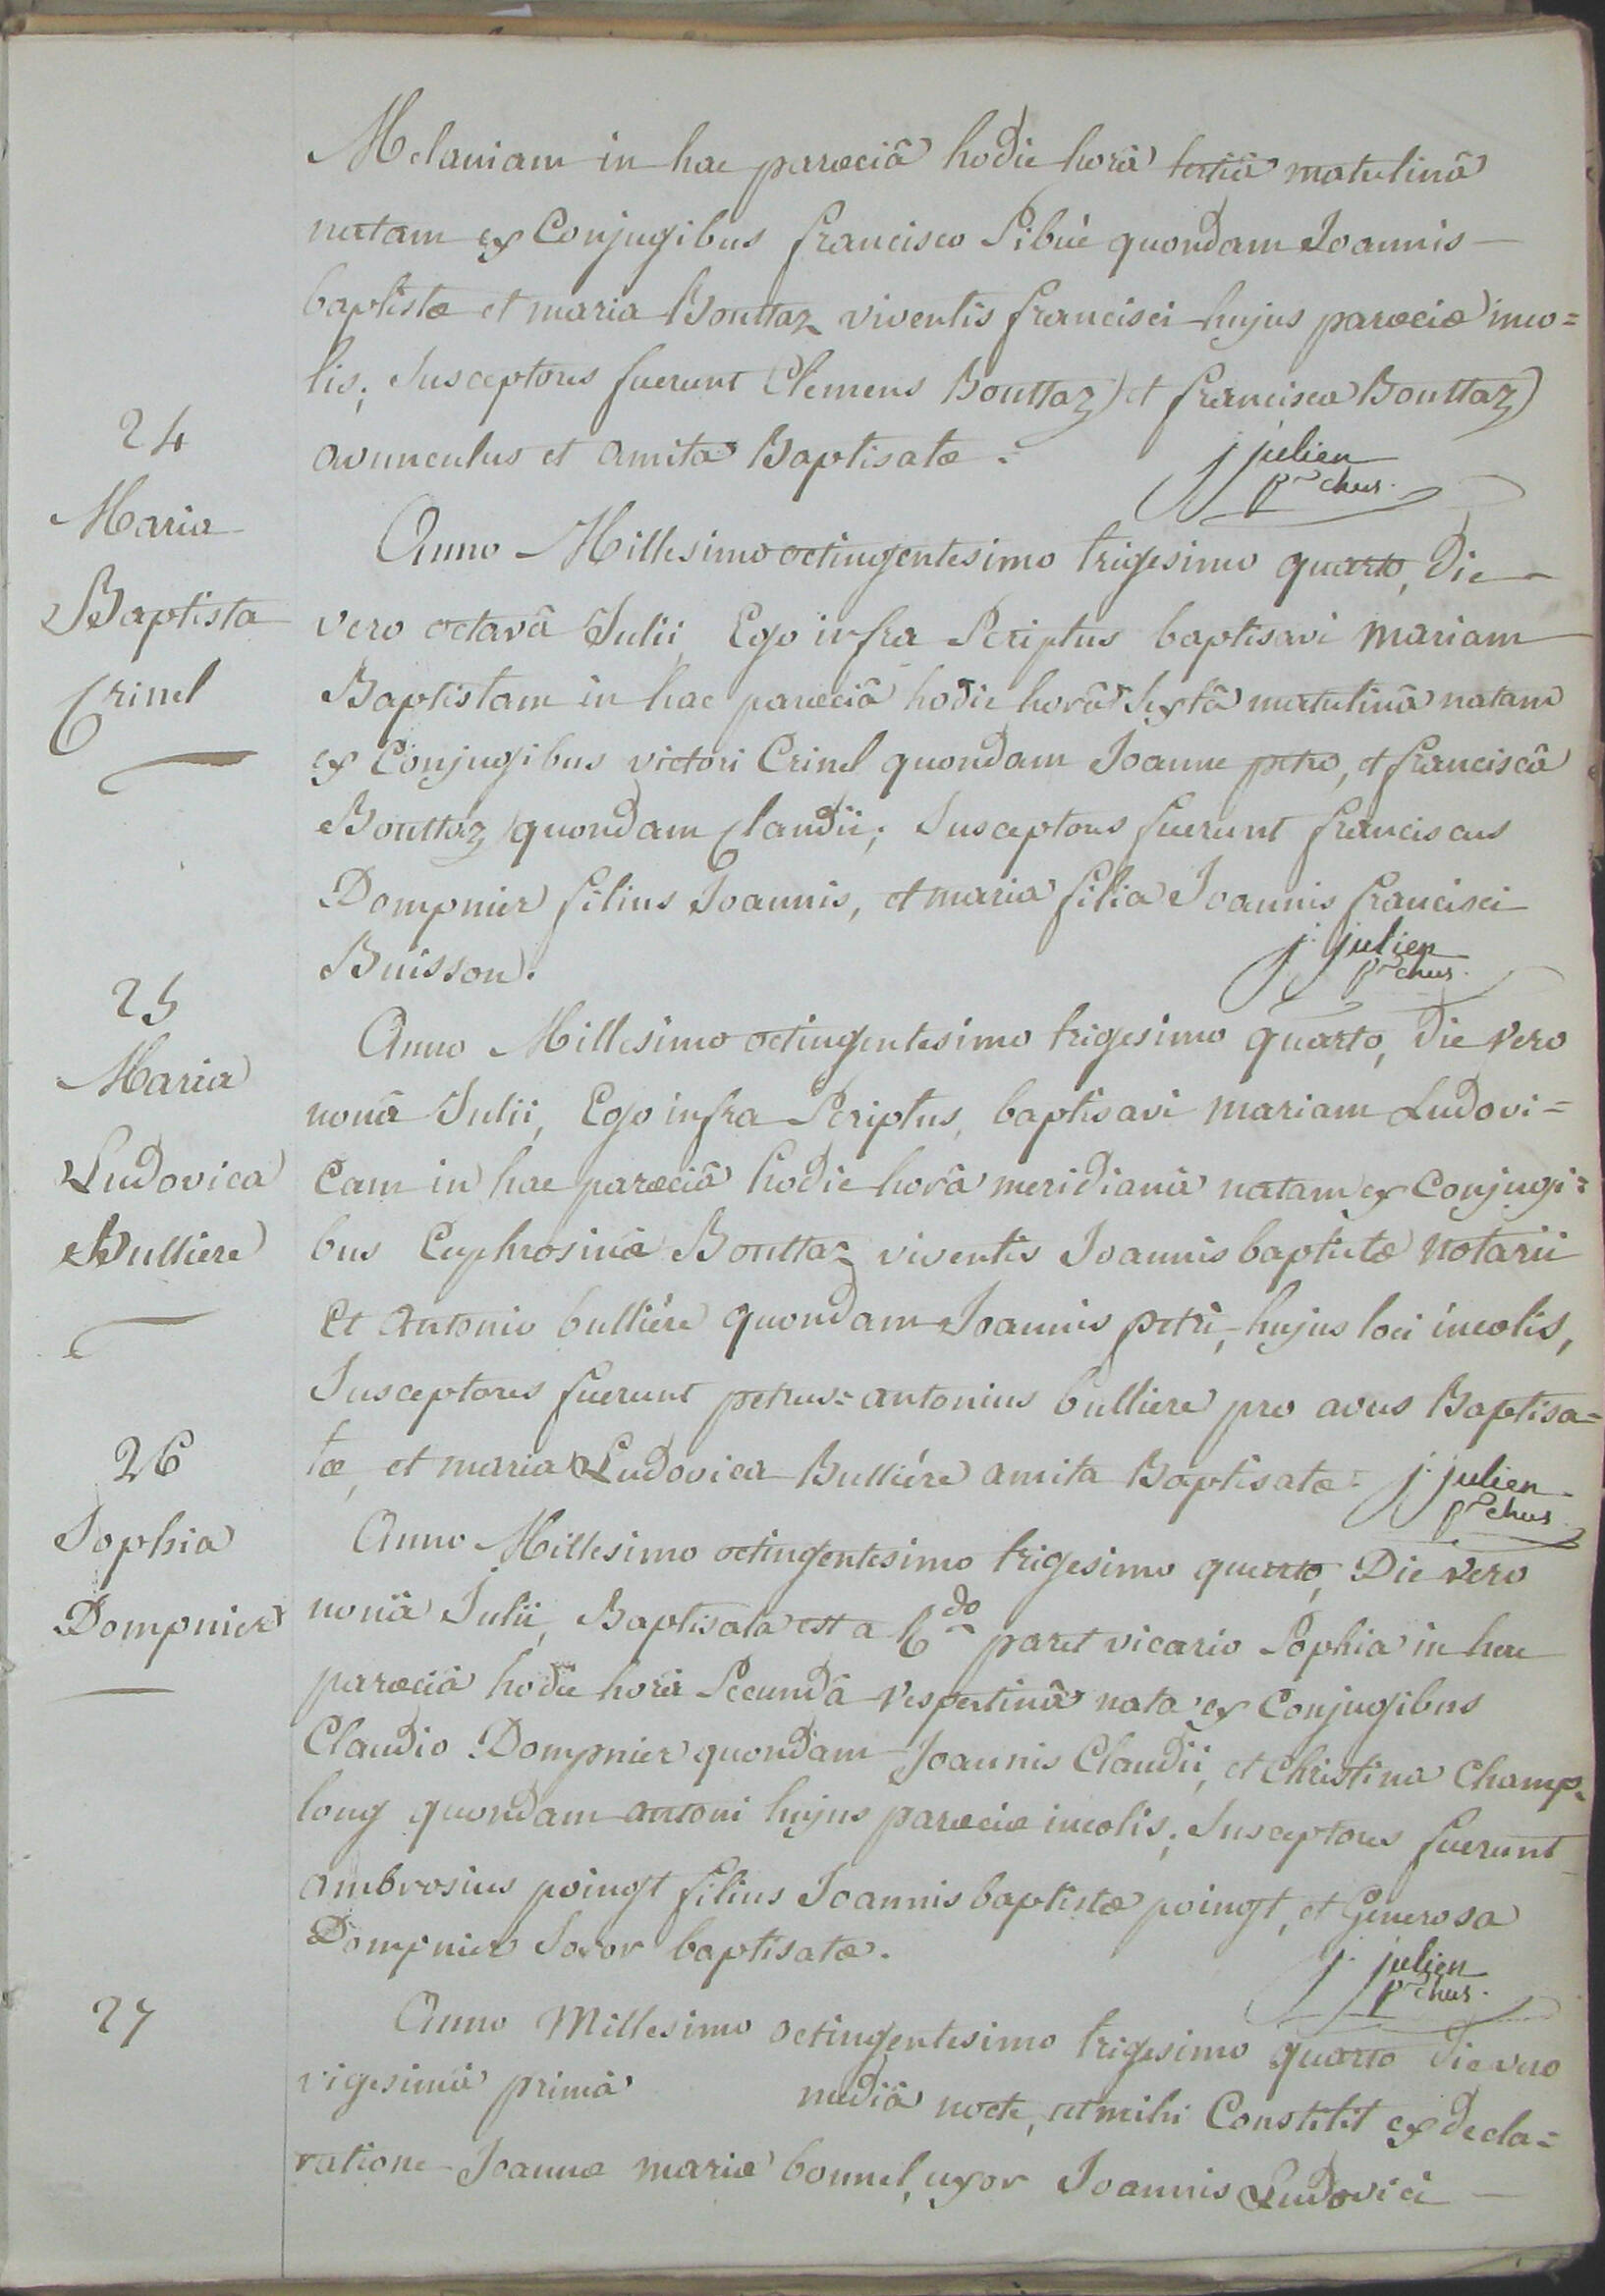 Melaniam in hac parœciâ hodie horâ tertiâ matutinâ
natam ex Conjugibus francisco Pibué quondam Joannis
baptistæ et maria Bouttaz viventis francisci hujus parœciæ inco=
lis; Susceptores fuerunt Clemens Bouttaz et francisca Bouttaz
avunculus et amita Baptisatæ.
j julien
pr chus.
24
Maria
Baptista
Crinel
Anno Millesimo octingentesimo trigesimo quarto, Die
vero octavâ Julii, Ego infra Scriptus baptisavi mariam
Baptistam in hac parœciâ hodie horâ Sextâ matutinâ natam
ex Conjugibus victori Crinel quondam Joanne petro, et franciscâ
Bouttaz quondam Claudii; Susceptores fuerunt franciscus
Dompnier filius Joannis, et maria filia Joannis francisci
Buisson.
j. julien
pr chus.
25
Maria
Ludovica
Bulliere
Anno Millesimo octingentesimo trigesimo quarto, Die vero
nonâ Julii, Ego infra Scriptus, baptisavi mariam Ludovi=
Cam in hac parœciâ hodie horâ meridianâ natam ex Conjugi=
bus Euphrosinæ Bouttaz viventis Joannis baptistæ notarii
Et Antonio bulliére quondam Joannis petri, hujus loci incolis,
Susceptores fuerunt petrus=antonius bulliere pro avus Baptisa=
tæ, et maria Ludovica Bulliére amita Baptisatæ.
j. julien
pr chus
26
Sophia
Dompnier
Anno Millesimo octingentesimo trigesimo quarto, Die vero
nonâ Julii, Baptisata est a Rdo paret vicario Sophia in hac
parœciâ hodie horâ Secundâ vespertinâ nata ex Conjugibus
Claudio Dompnier quondam Joannis Claudii, et Christina Champ=
long quondam antoni hujus parœciæ incolis; Susceptores fuerunt
ambrosius poingt filius Joannis baptistæ poingt, et Generosa
Dompnier Soror baptisatæ.
j. julien
pr chus.
27
Anno Millesimo octingentesimo trigesimo quarto die vero
vigesimâ primâ mediâ nocte, ut mihi Constitit ex decla=
ratione Joannæ mariæ bonnel, uxor Joannis Ludovici